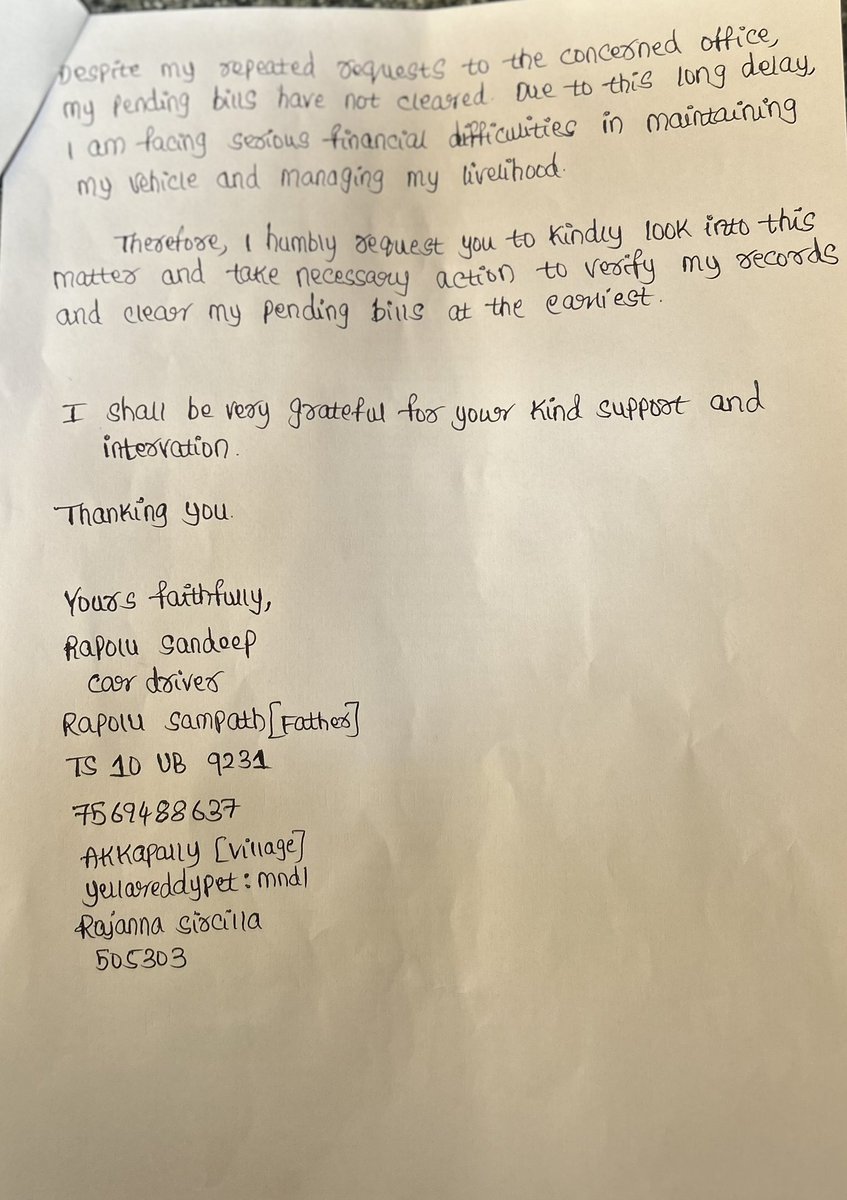 Despite my repeated requests to the concerned office,
my pending bills have not cleared. Due to this long delay,
I am facing serious financial difficulties in maintaining
my vehicle and managing my livelihood.
Therefore, I humbly request you to kindly look into this
matter and take necessary action to verify my records
and clear my pending bills at the earliest.
I shall be very grateful for your kind support and
intervation.
Thanking you.
Yours faithfully,
Rapolu Sandeep
car driver
Rapolu Sampath [Father]
TS 10 UB 9231
7569488637
AKKapally [village]
yellareddypet : mndl
Rajanna Sircilla
505303